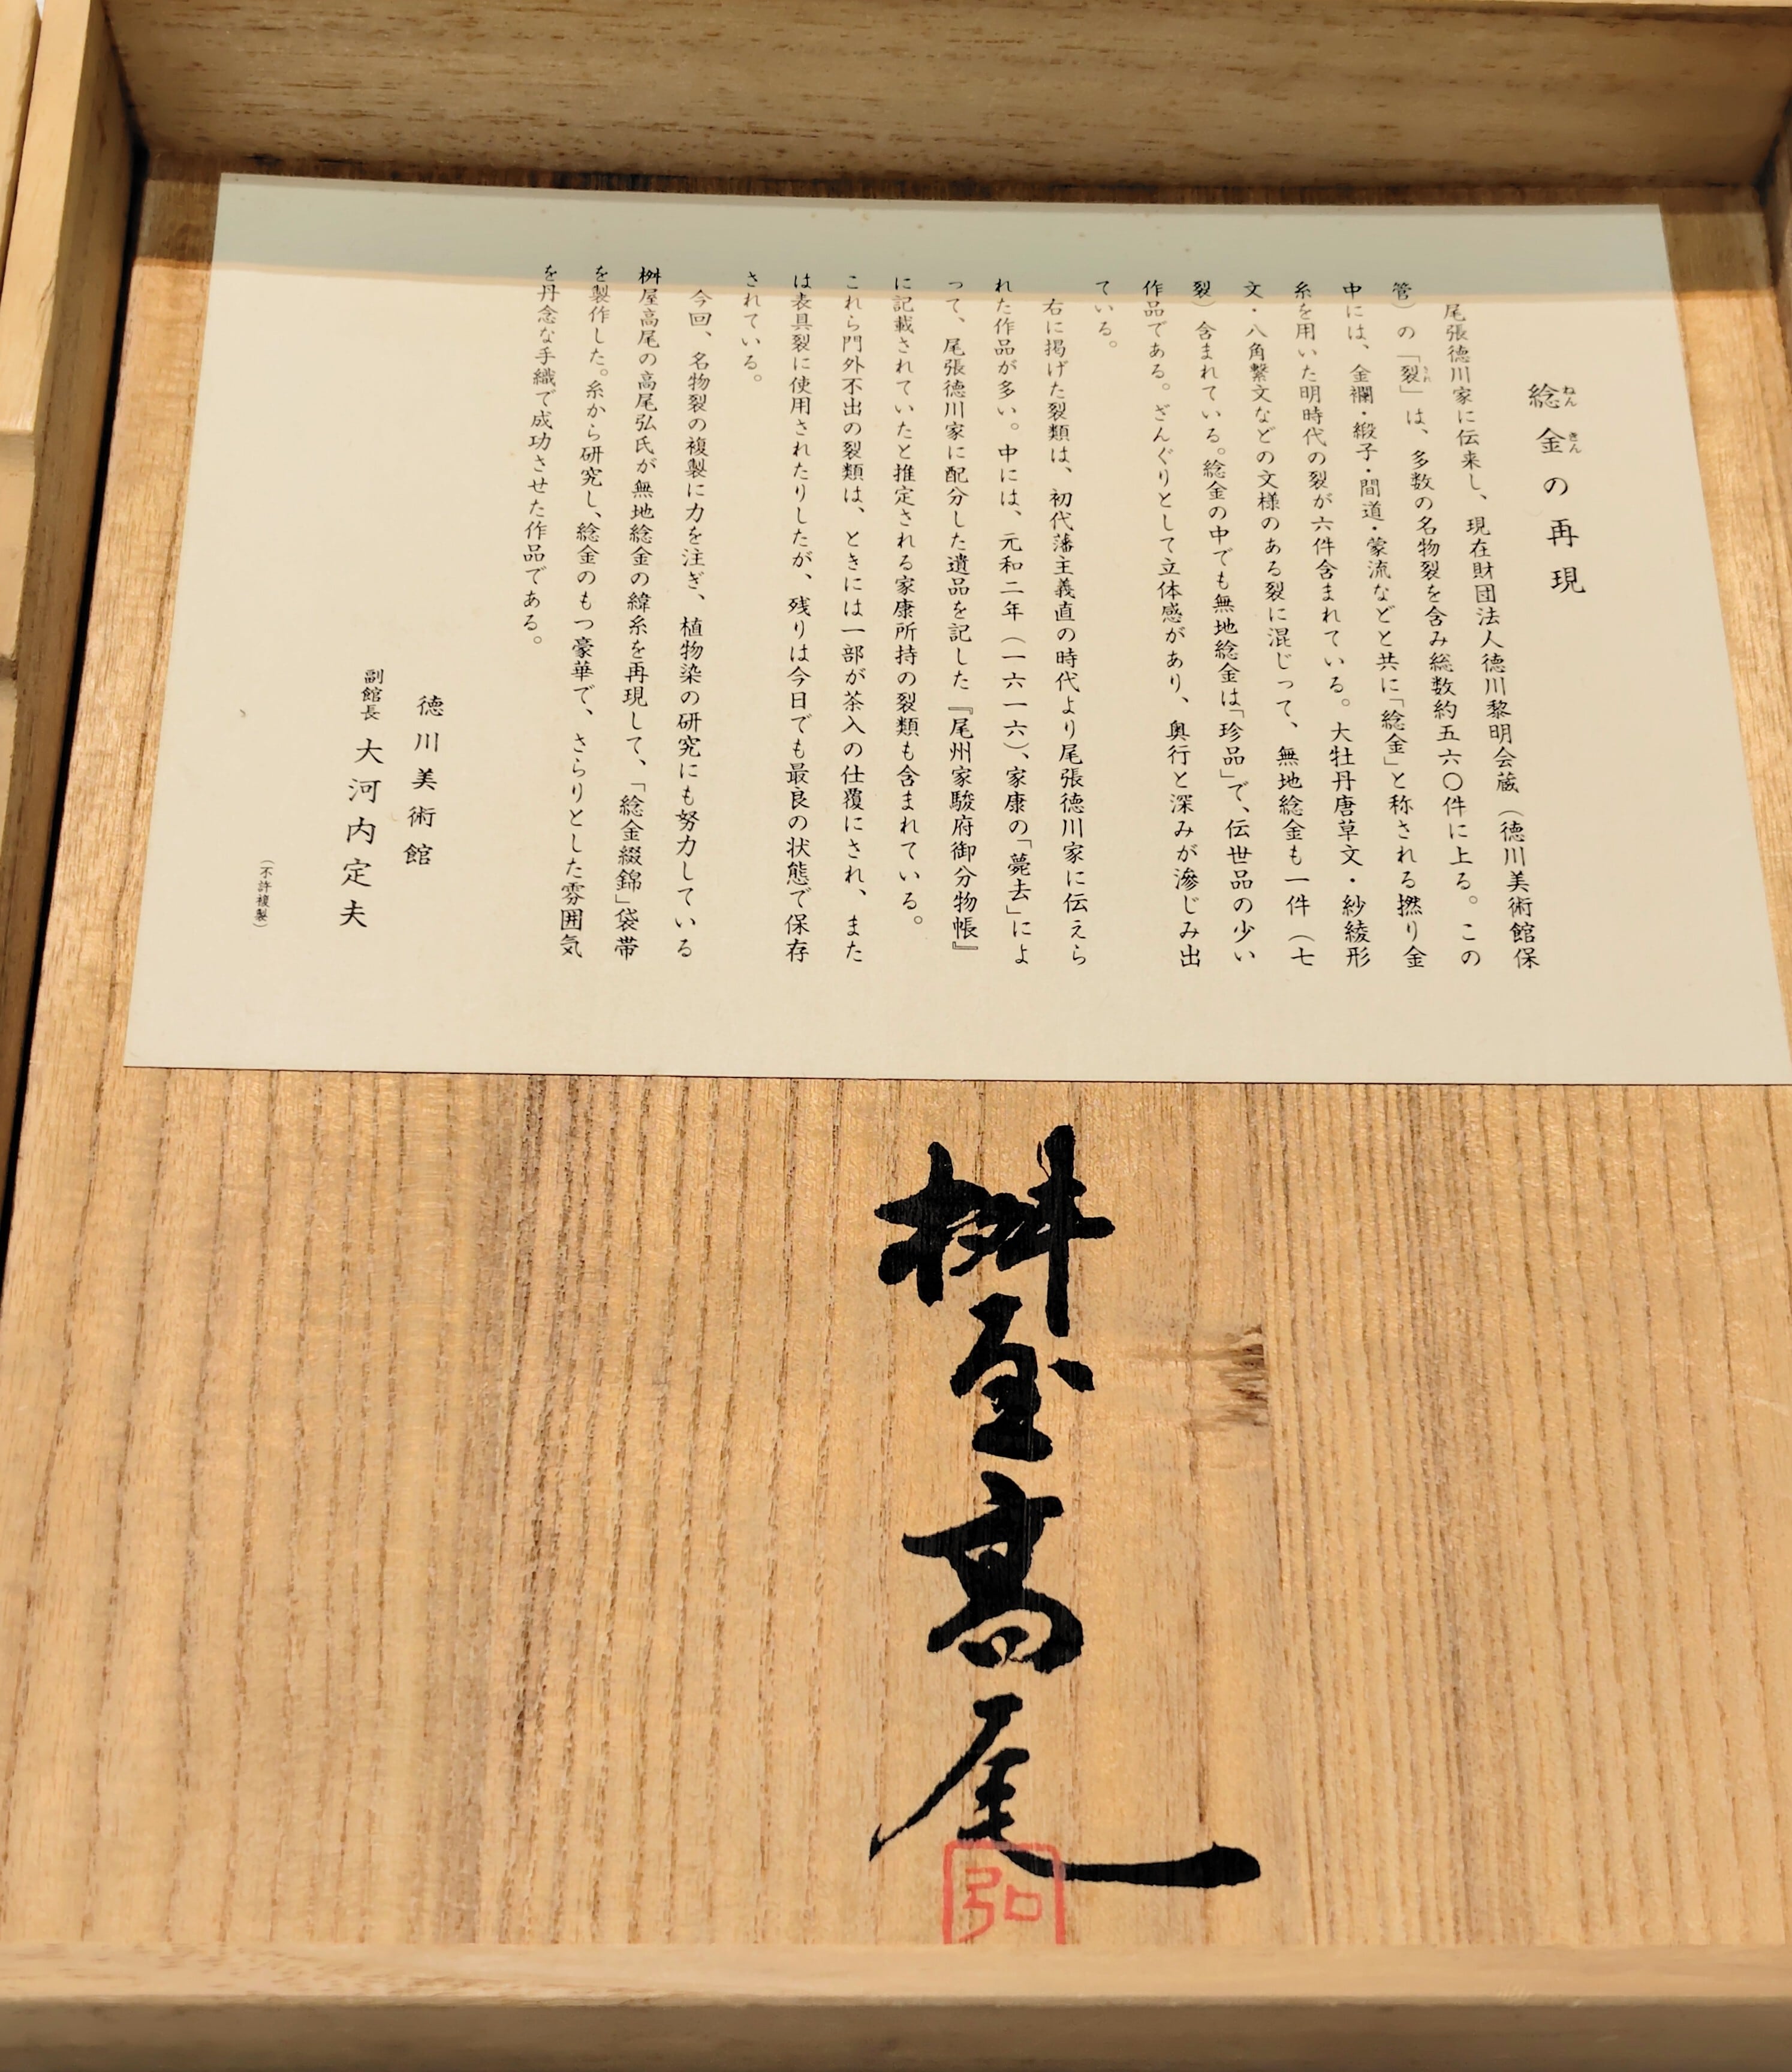 総金の再現
ねんきん
尾張徳川家に伝来し、現在財団法人徳川黎明会蔵（徳川美術館保
管）の「裂」は、多数の名物裂を含み総数約五六〇件に上る。この
きれ
中には、金襴・緞子・間道・蒙流などと共に「総金」と称される撚り金
糸を用いた明時代の裂が六件含まれている。大牡丹唐草文・紗綾形
文・八角繋文などの文様のある裂に混じって、無地総金も一件（七
裂）含まれている。総金の中でも無地総金は「珍品」で、伝世品の少い
作品である。ざんぐりとして立体感があり、奥行と深みが滲じみ出
ている。
右に掲げた裂類は、初代藩主義直の時代より尾張徳川家に伝えら
れた作品が多い。中には、元和二年（一六一六）、家康の「薨去」によ
って、尾張徳川家に配分した遺品を記した『尾州家駿府御分物帳』
に記載されていたと推定される家康所持の裂類も含まれている。
これら門外不出の裂類は、ときには一部が茶入の仕覆にされ、また
は表具裂に使用されたりしたが、残りは今日でも最良の状態で保存
されている。
今回、名物裂の複製に力を注ぎ、植物染の研究にも努力している
桝屋高尾の高尾弘氏が無地総金の緯糸を再現して、「総金綴錦」袋帯
を製作した。糸から研究し、総金のもつ豪華で、さらりとした雰囲気
を丹念な手織で成功させた作品である。
徳川美術館
副館長 大河内定夫
（不許複製）
桝屋高尾
弘